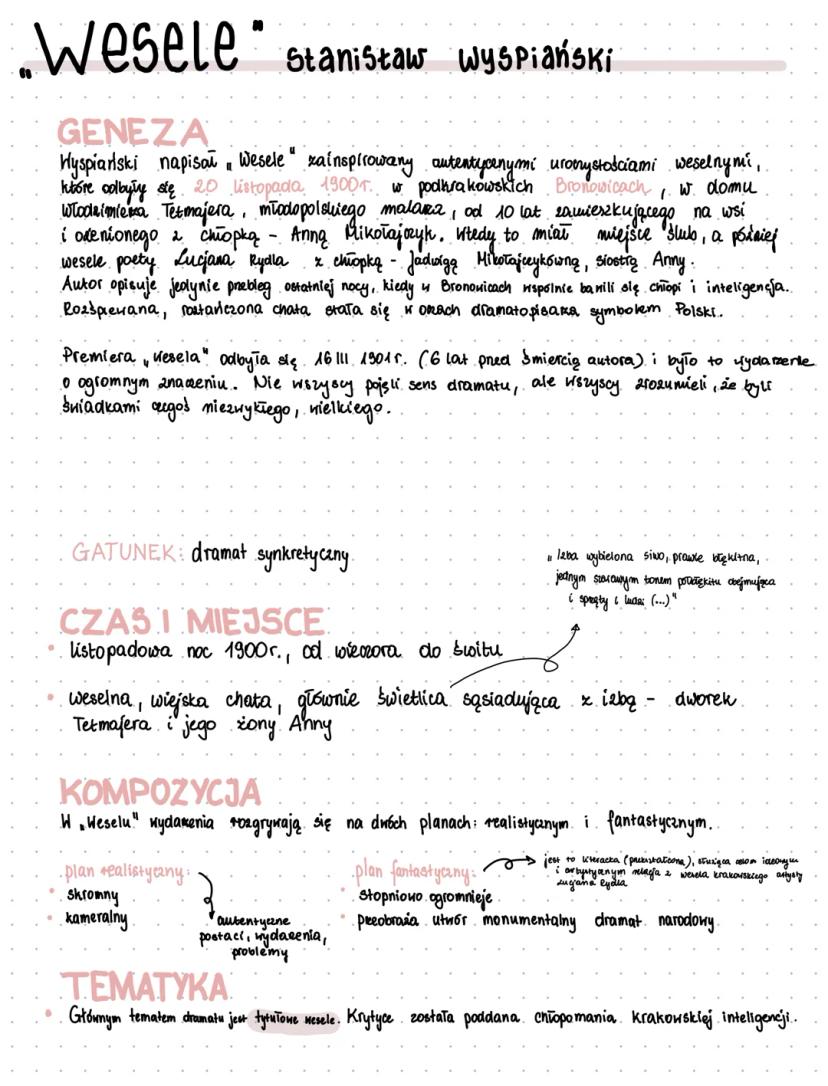 „Wesele" Stanisław Wyspiański
GENEZA
Wyspiański napisał „Wesele" zainspirowany autentycznymi uroczystościami weselnymi,
które odbyły się 20 listopada 1900r. w podkrakowskich Bronowicach, w domu
Włodzimierza Tetmajera, młodopolskiego malarza, od 10 lat zamieszkującego na wsi
i ożenionego z chłopką - Anną Mikołajczyk. Wtedy to miał miejsce ślub, a później
wesele poety Lucjana Rydla z chłopką - Jadwigą Mikołajczykówną, siostrą Anny.
Autor opisuje jedynie przebieg ostatniej nocy, kiedy w Bronowicach wspólnie bawili się chłopi i inteligencja.
Rozśpiewana, roztańczona chata stała się w oczach dramatopisarza symbolem Polski.
Premiera „Wesela" odbyła się 16 III 1901r. (6 lat przed śmiercią autora) i było to wydarzenie
o ogromnym znaczeniu. Nie wszyscy pojęli sens dramatu, ale wszyscy zrozumieli, że byli
świadkami czegoś niezwykłego, wielkiego.
GATUNEK: dramat synkretyczny
„Izba wybielona siwo, prawie błękitna,
jednym szarawym tonem półbłękitu obejmująca
i sprzęty i ludzi (...)"
CZAS I MIEJSCE
• listopadowa noc 1900r., od wieczora do świtu
• weselna, wiejska chata, głównie świetlica sąsiadująca z izbą - dworek
Tetmajera i jego żony Anny
KOMPOZYCJA
W „Weselu" wydarzenia rozgrywają się na dwóch planach: realistycznym i fantastycznym.
plan realistyczny:
• skromny
• kameralny
autentyczne
postaci, wydarzenia,
problemy
plan fantastyczny:
jest to literacka (przekształcona), służąca celom ideowym
i artystycznym relacja z wesela krakowskiego artysty
Lucjana Rydla
• stopniowo ogromnieje
• przeobraża utwór monumentalny dramat narodowy
TEMATYKA
• Głównym tematem dramatu jest tytułowe wesele. Krytyce została poddana chłopomania krakowskiej inteligencji.